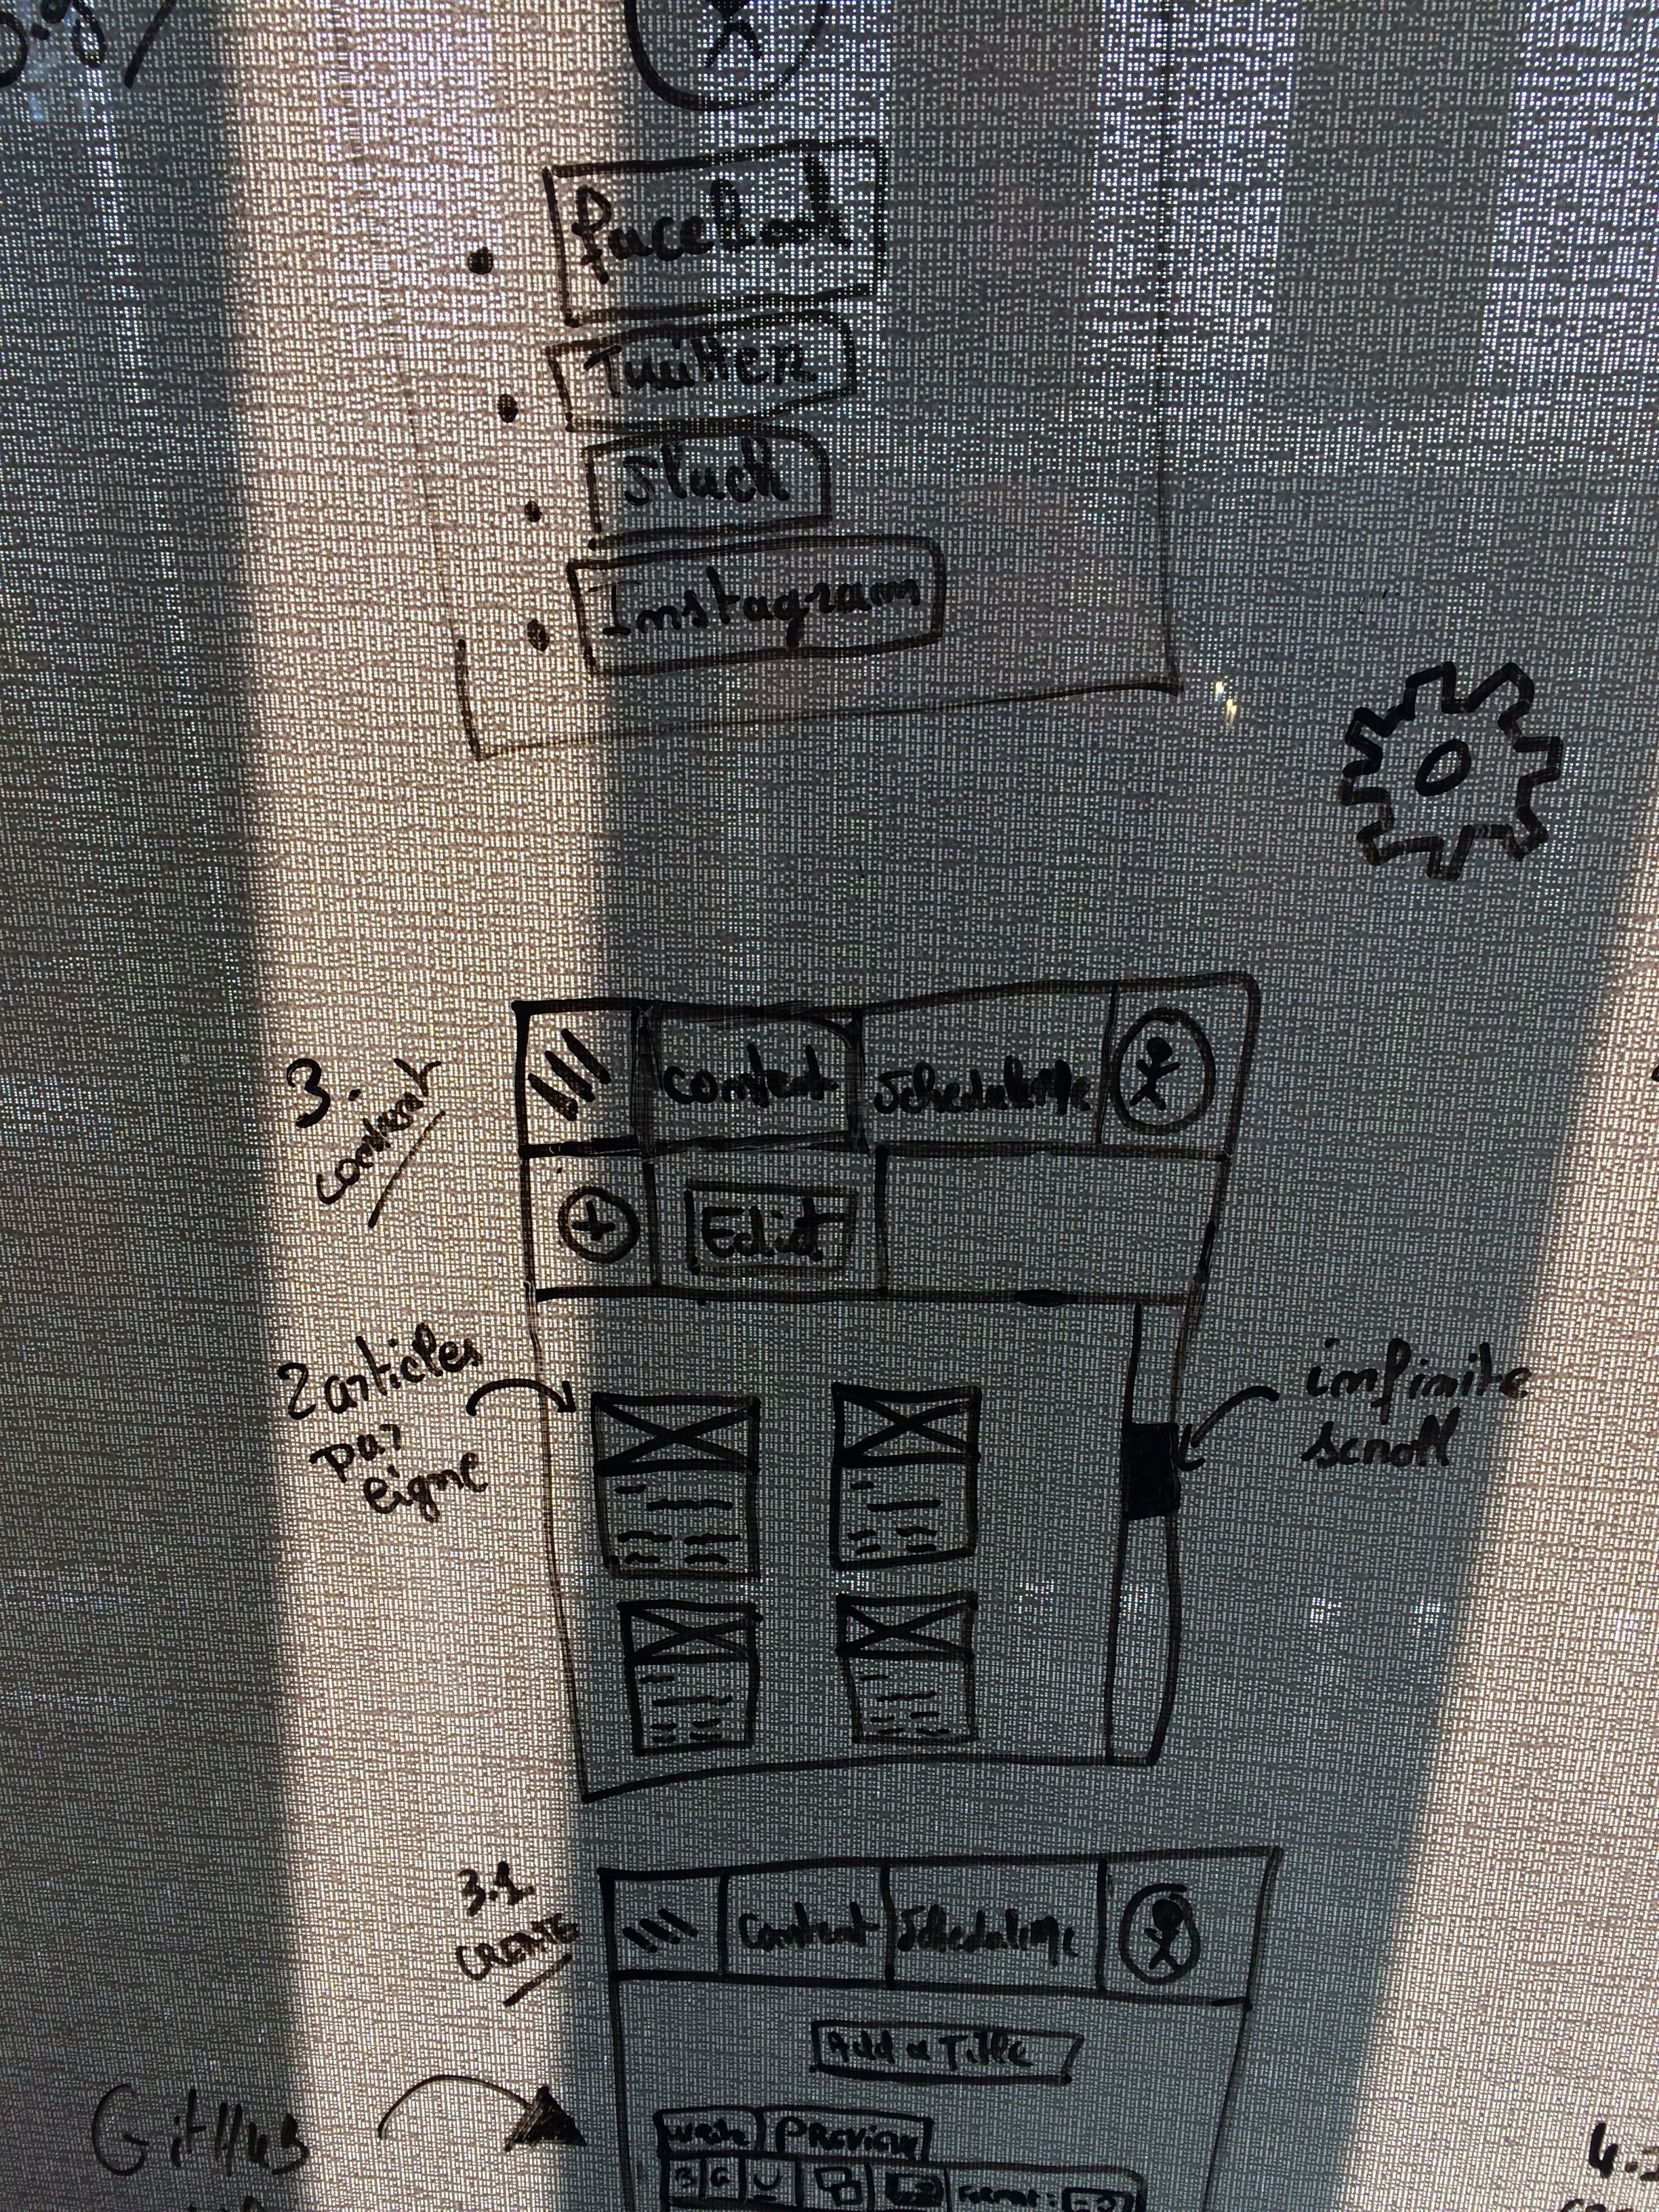 Facebook
Twitter
Slack
Instagram
3.
content
content
Scheduling
+
Edit
2 articles
par
ligne
infinite
scroll
3.1
CREATE
Content
Scheduling
Add a Title
GitHub
Write
Preview
B
G
U
Format: